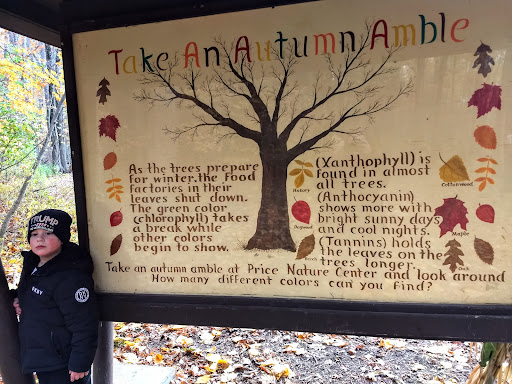 Take An Autumn Amble
As the trees prepare
for winter, the food
factories in their
leaves shut down.
The green color
(chlorophyll) takes
a break while
other colors
begin to show.
(Xanthophyll) is
found in almost
all trees.
(Anthocyanin)
shows more with
bright sunny days
and cool nights.
(Tannins) holds
the leaves on the
trees longer.
Hickory
Dogwood
Birch
Cottonwood
Maple
Oak
Take an autumn amble at Price Nature Center and look around
How many different colors can you find?
TRUMP